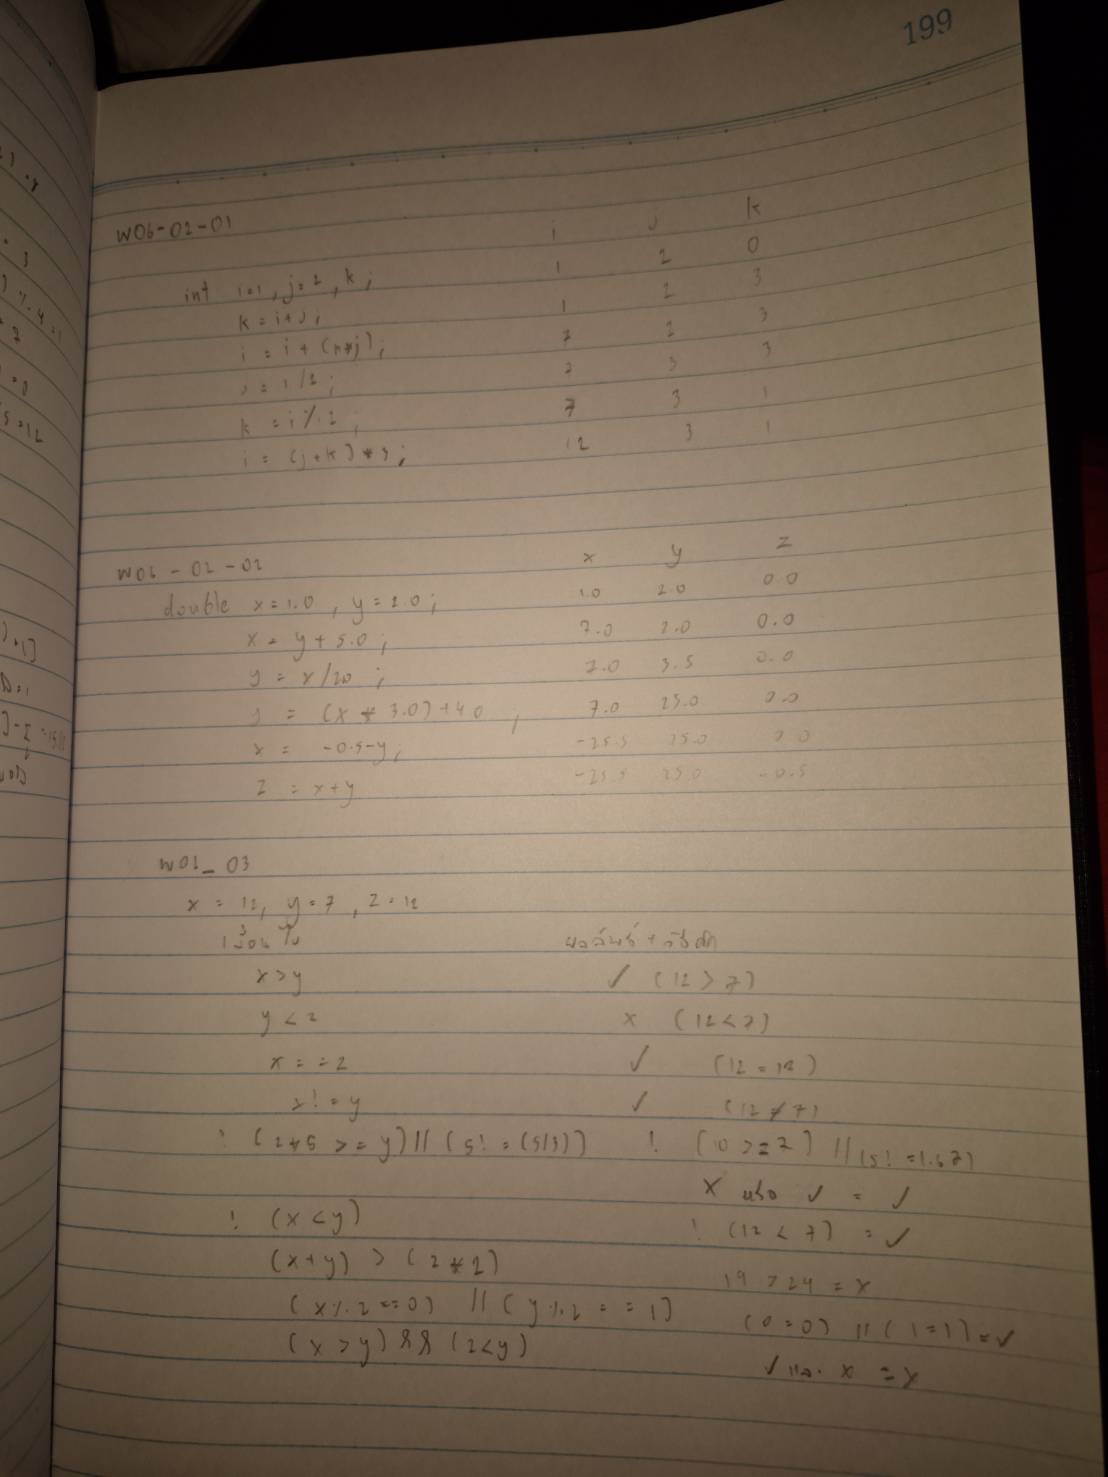 199
W06-02-01 i j k
int i=1, j=2, k; 1 2 0
k = i+j; 1 2 3
i = i + ( *j); 7 2 3
j = i/2; 7 3 3
k = i%2; 7 3 1
i = (j+k)*3; 12 3 1
W06-02-02 x y z
double x=1.0, y=2.0; 1.0 2.0 0.0
x = y+5.0; 7.0 2.0 0.0
y = x/2.0; 7.0 3.5 0.0
y = (x * 3.0)+4.0; 7.0 25.0 0.0
x = -0.5-y; -25.5 25.0 0.0
z = x+y -25.5 25.0 -0.5
W01_03
x = 12, y=7, z=12
เงื่อนไข ผลลัพธ์ + วิธีคิด
x>y ✓ (12 > 7)
y<z x (12<7)
x==z ✓ (12=12)
x!=y ✓ (12≠7)
! (2*5 >= y) || (5!=(5/3)) ! (10>=7) || (5!=1.67)
X หรือ ✓ = ✓
! (x<y) ! (12<7) =✓
(x+y) > (2*z) 19 > 24 = x
(x%2==0) || (y%2==1) (0=0) || (1=1)=✓
(x>y) && (z<y) ✓ และ x = x